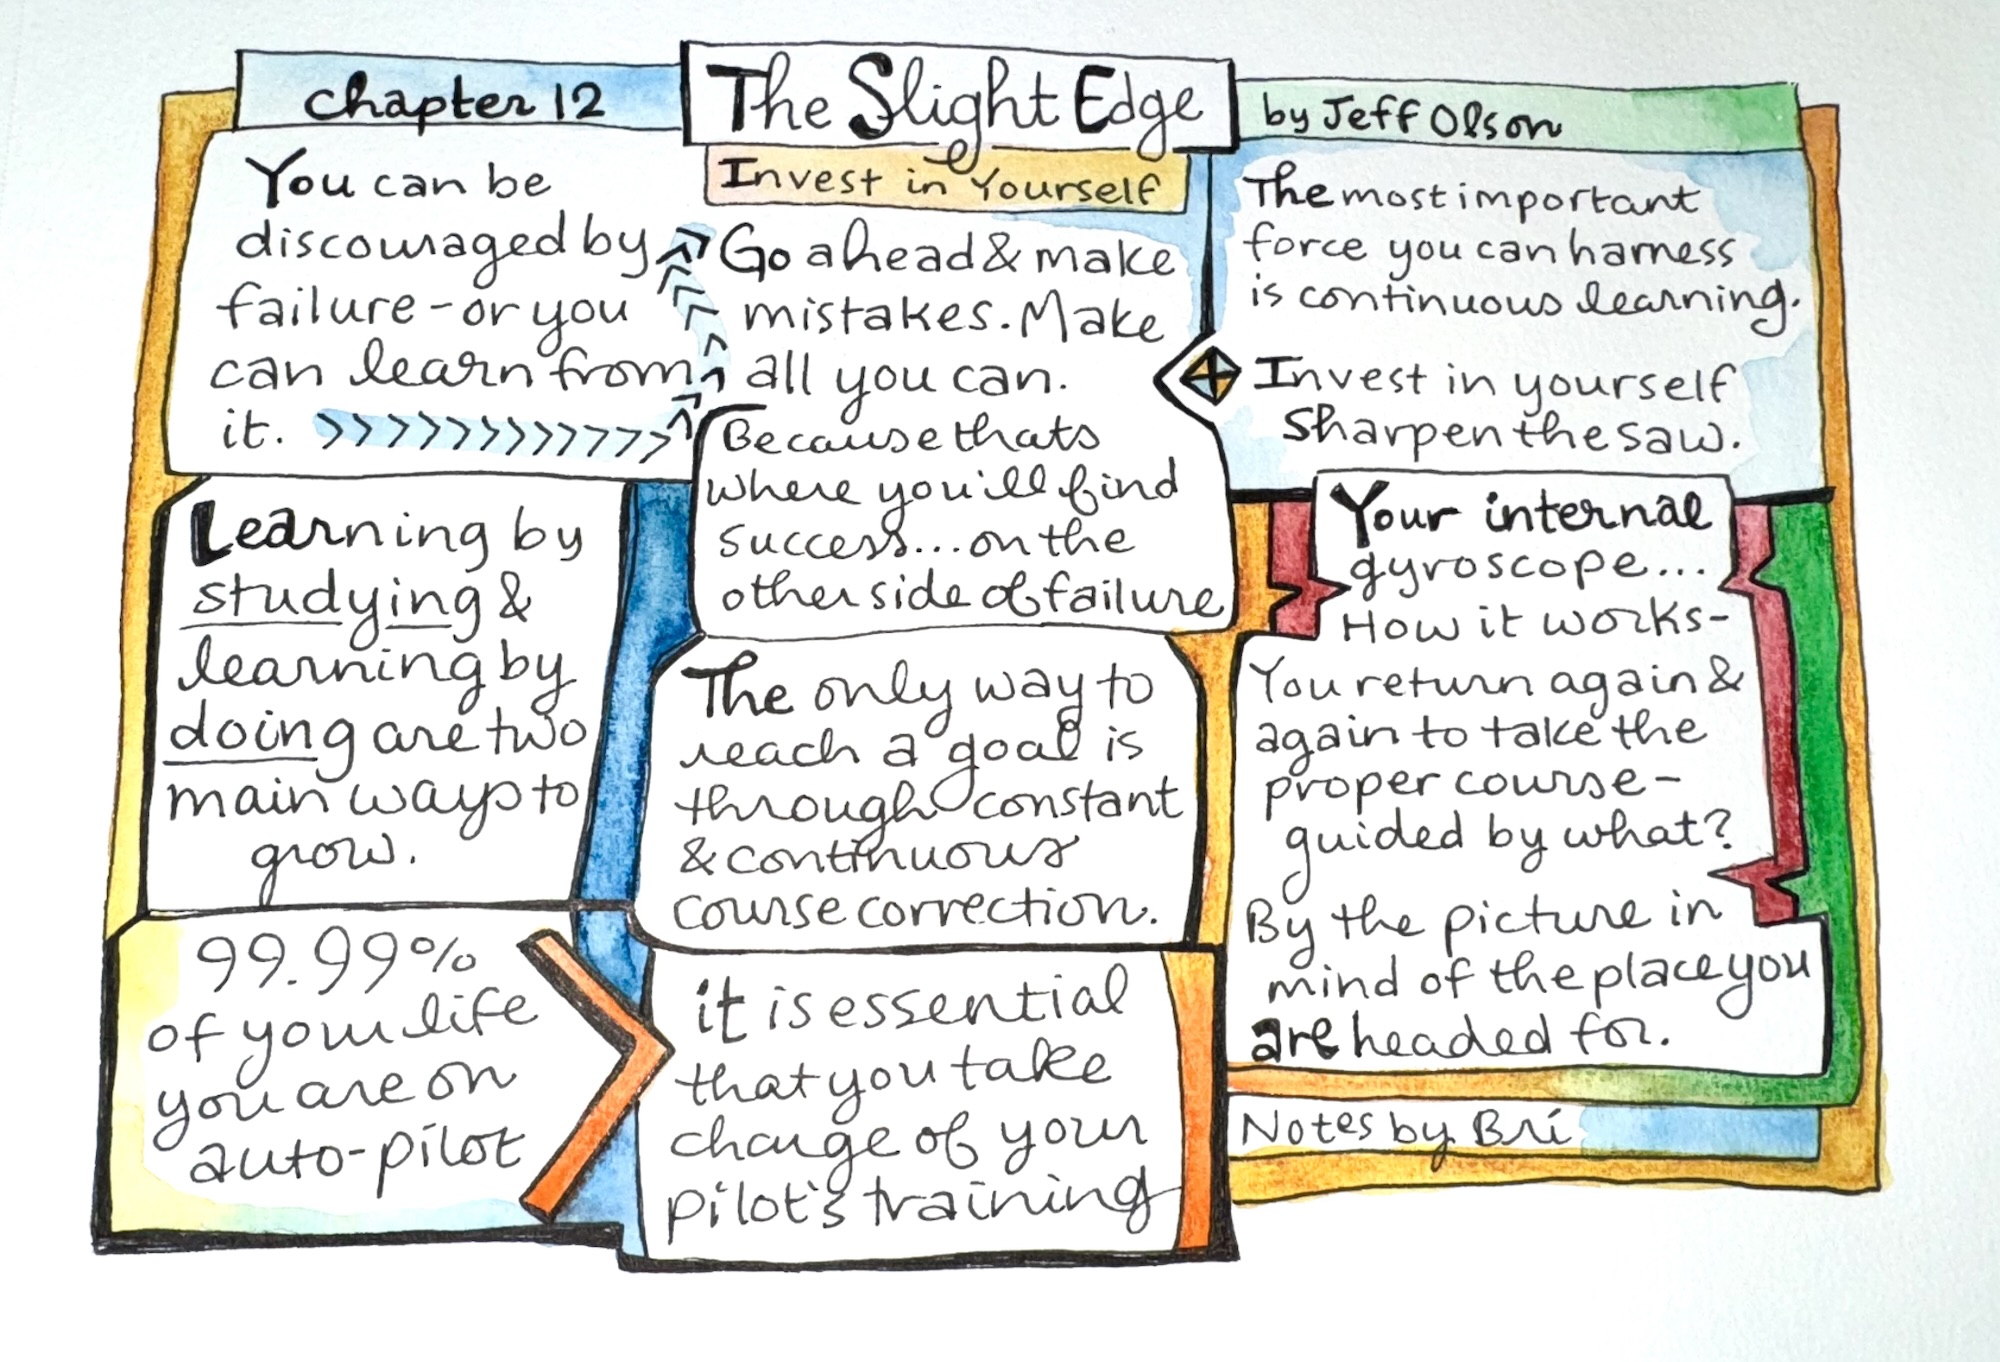 Chapter 12
The Slight Edge
by Jeff Olson
Invest in Yourself
You can be
discouraged by
failure - or you
can learn from
it. >>>>>>>>>>>>
Go ahead & make
mistakes. Make
all you can.
Because thats
where you'ill find
success... on the
other side of failure
The most important
force you can harness
is continuous learning.
Invest in yourself
Sharpen the saw.
Learning by
studying &
learning by
doing are two
main ways to
grow.
The only way to
reach a goal is
through constant
& continuous
course correction.
Your internal
gyroscope...
How it works-
You return again &
again to take the
proper course-
guided by what?
By the picture in
mind of the place you
are headed for.
99.99%
of your life
you are on
auto-pilot
it is essential
that you take
charge of your
pilot's training
Notes by Bri